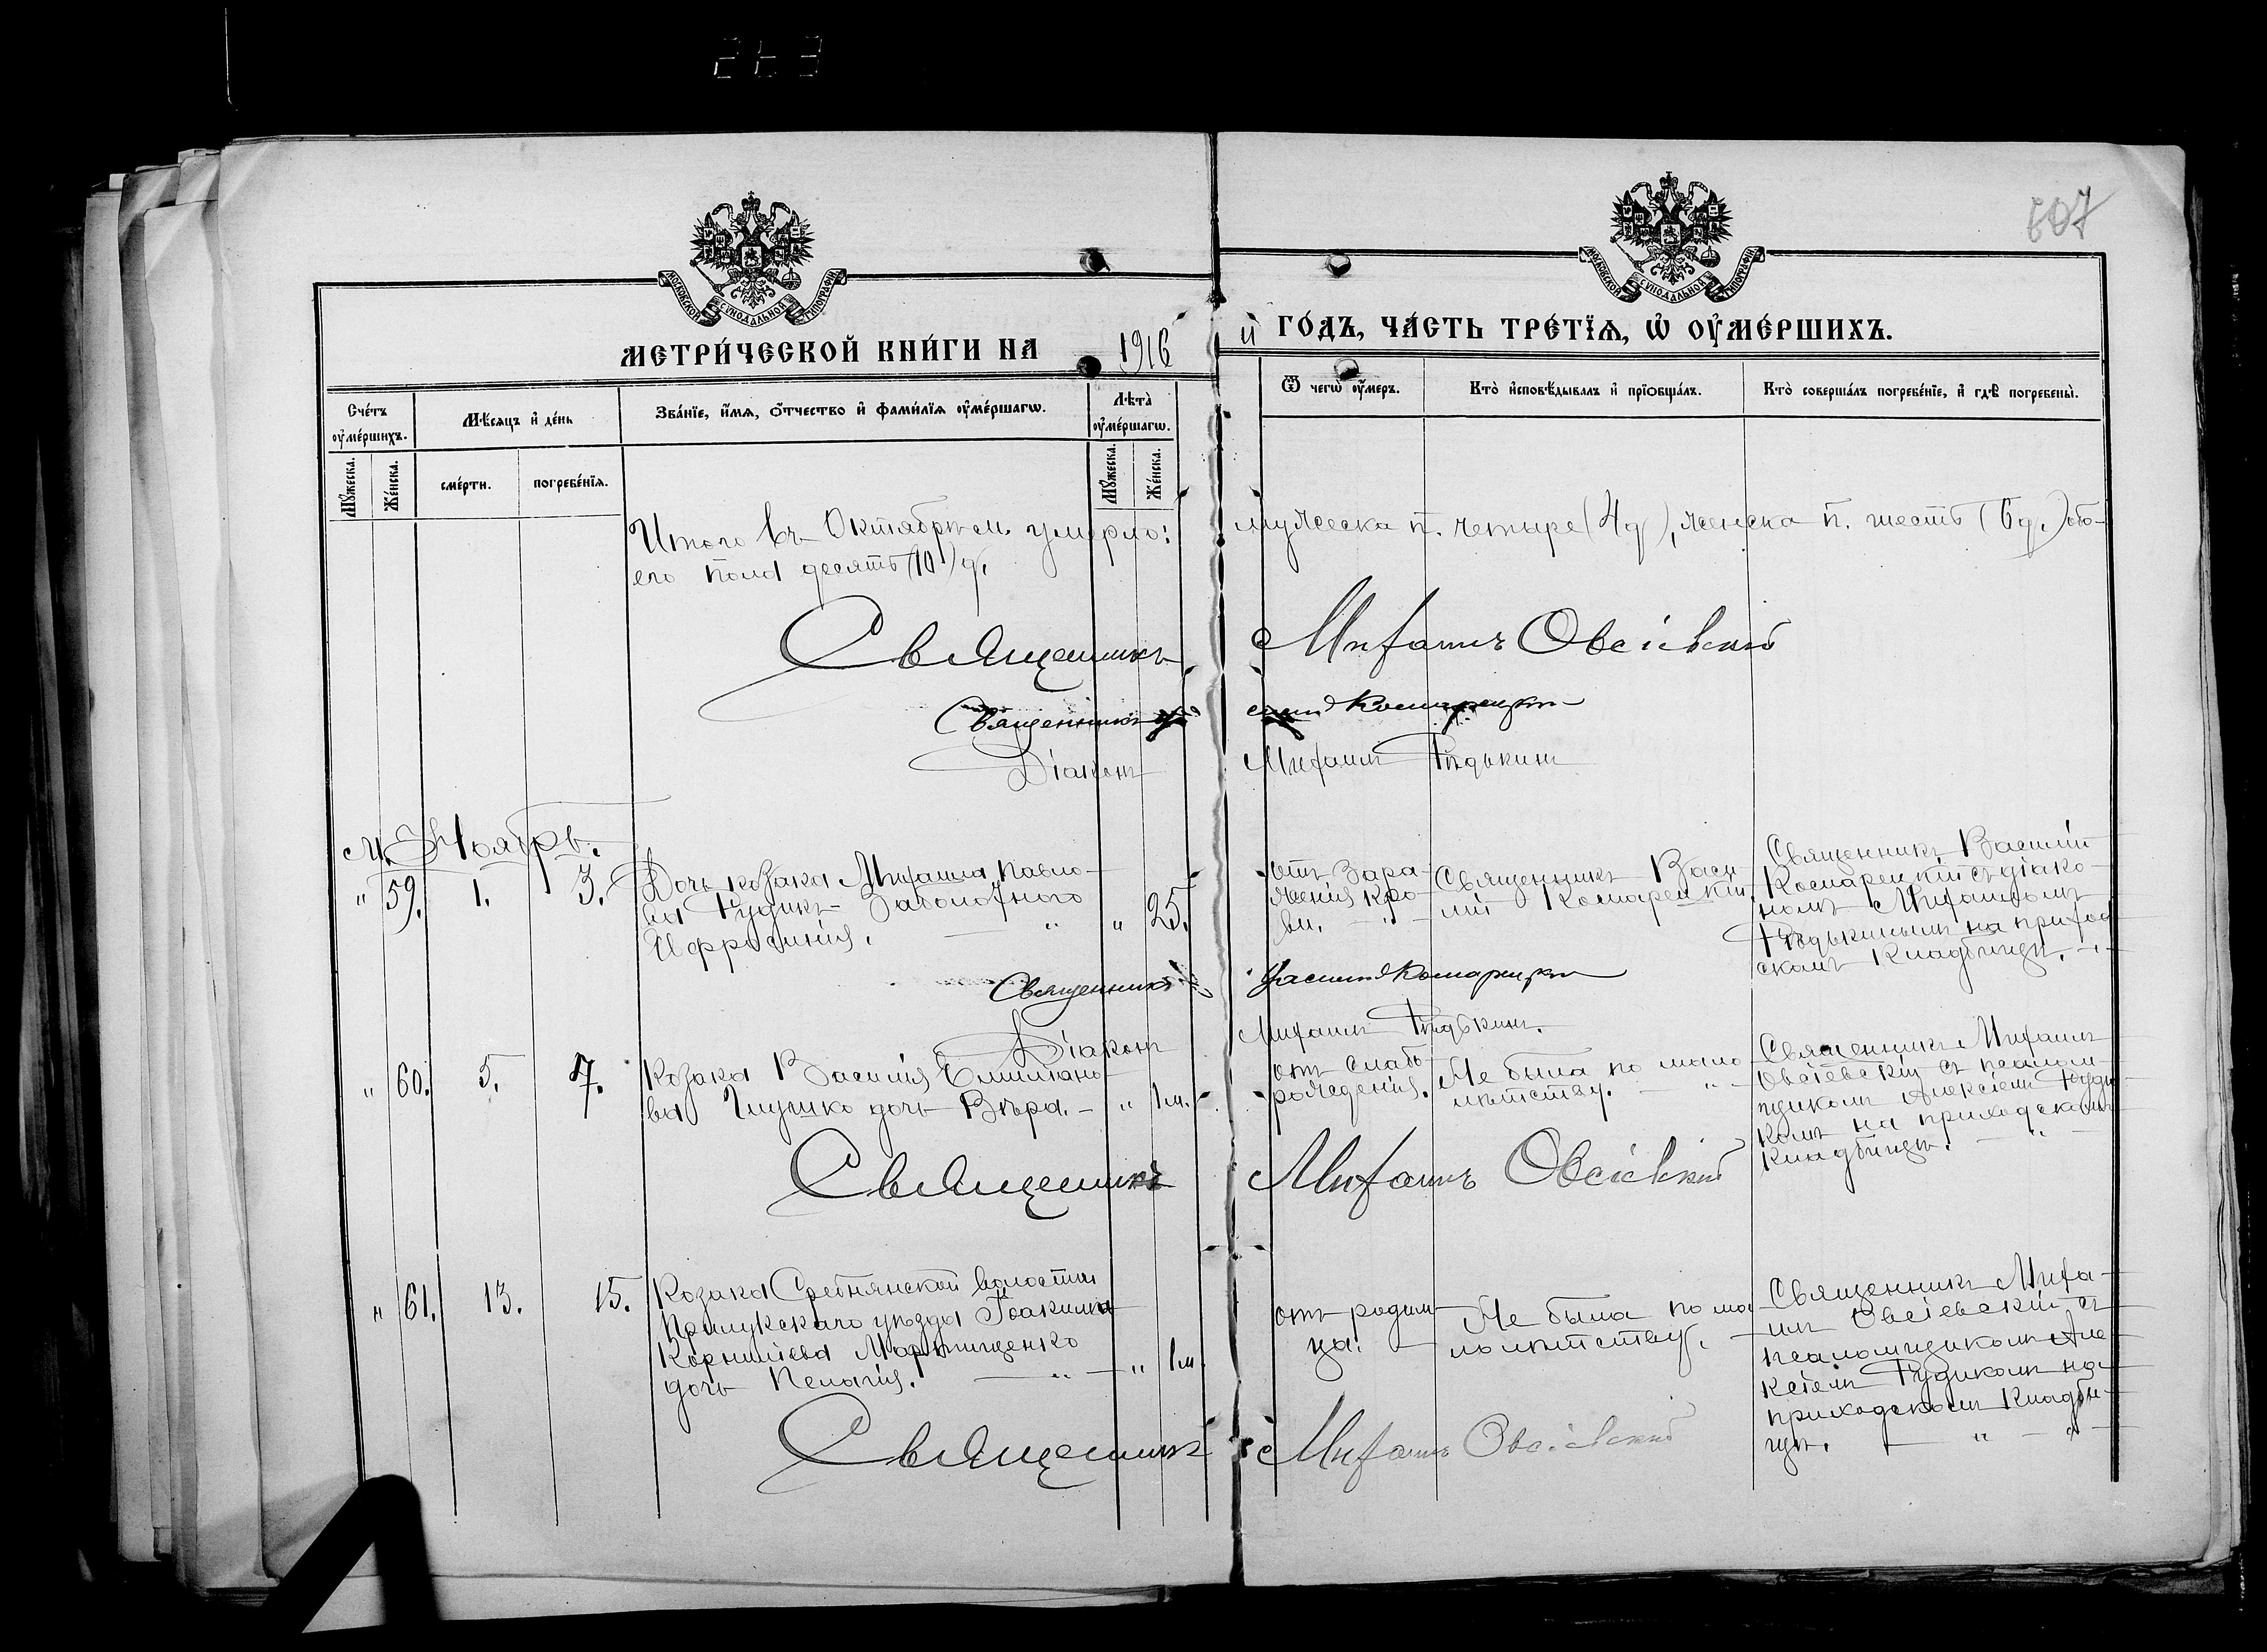 243
607
МОСКОВСКОЙ СѴНОДАЛЬНОЙ ТИПОГРАФІИ
МОСКОВСКОЙ СѴНОДАЛЬНОЙ ТИПОГРАФІИ
МЕТРИ́ЧЕСКОЙ КНИ́ГИ НА 1916
й ГО́ДЪ, ЧА́СТЬ ТРЕ́ТЇѦ, Ѡ҆ ОУ҆МЕ́РШИХЪ.
Сче́тъ оу҆ме́ршихъ.
Мѣ́сѧцъ и҆ де́нь
Зва́нїе, и҆́мѧ, ѻ҆́тчество и҆ фами́лїѧ оу҆ме́ршагѡ.
Лѣ́та̀ оу҆ме́ршагѡ.
Ѿ чегѡ̀ оу҆́меръ.
Кто̀ и҆сповѣ́дывалъ и҆ прїѡбща́лъ.
Кто̀ соверша́лъ погребе́нїе, и҆ гдѣ̀ погребены̀.
Мꙋ́жеска.
Же́нска.
сме́рти.
погребе́нїѧ.
Мꙋ́жеска.
Же́нска.
Итого въ Октябрѣ м. умерло:
мужеска п. четыре (4 д), женска п. шесть (6 д.) обо-
его пола десять (10) д.
Священникъ Михаилъ Овсіевскій
Священникъ Комарецкій
Діаконъ Михаилъ Рѣдькинъ
М. Ноябрь.
" 59. 1. 3.
Дочь козака Михаила Павло-
ва Рудикъ-Заболотного
Ефросинія. " " 25.
отъ зара-
женія кро-
ви.
Священникъ Васи-
лій Комарецкій.
Священникъ Василій
Комарецкій съ діако-
номъ Михаиломъ
Рѣдькинымъ на приход
скомъ кладбищѣ.
Священникъ Василій Комарецкій
Діаконъ Михаилъ Рѣдькинъ.
" 60. 5. 7.
Козака Василія Емиліано-
ва Глушко дочь Вѣра. - " 1 м.
отъ слабо-
рожденія.
Не была по мало
лѣтству.
Священникъ Михаилъ
Овсіевскій съ псалом-
щикомъ Алексіемъ Руди
комъ на приходскомъ
кладбищѣ.
Священникъ Михаилъ Овсіевскій
" 61. 13. 15.
Козака Сребнянской волости
Прилукскаго уѣзда Іоакима
Корниліева Мартищенко
дочь Пелагія. " " 1 м.
отъ родим-
ца.
Не была по ма-
лолѣтству.
Священникъ Миха-
илъ Овсіевскій съ
псаломщикомъ Але-
ксіемъ Рудикомъ на
приходскомъ кладби-
щѣ. " "
Священникъ Михаилъ Овсіевскій